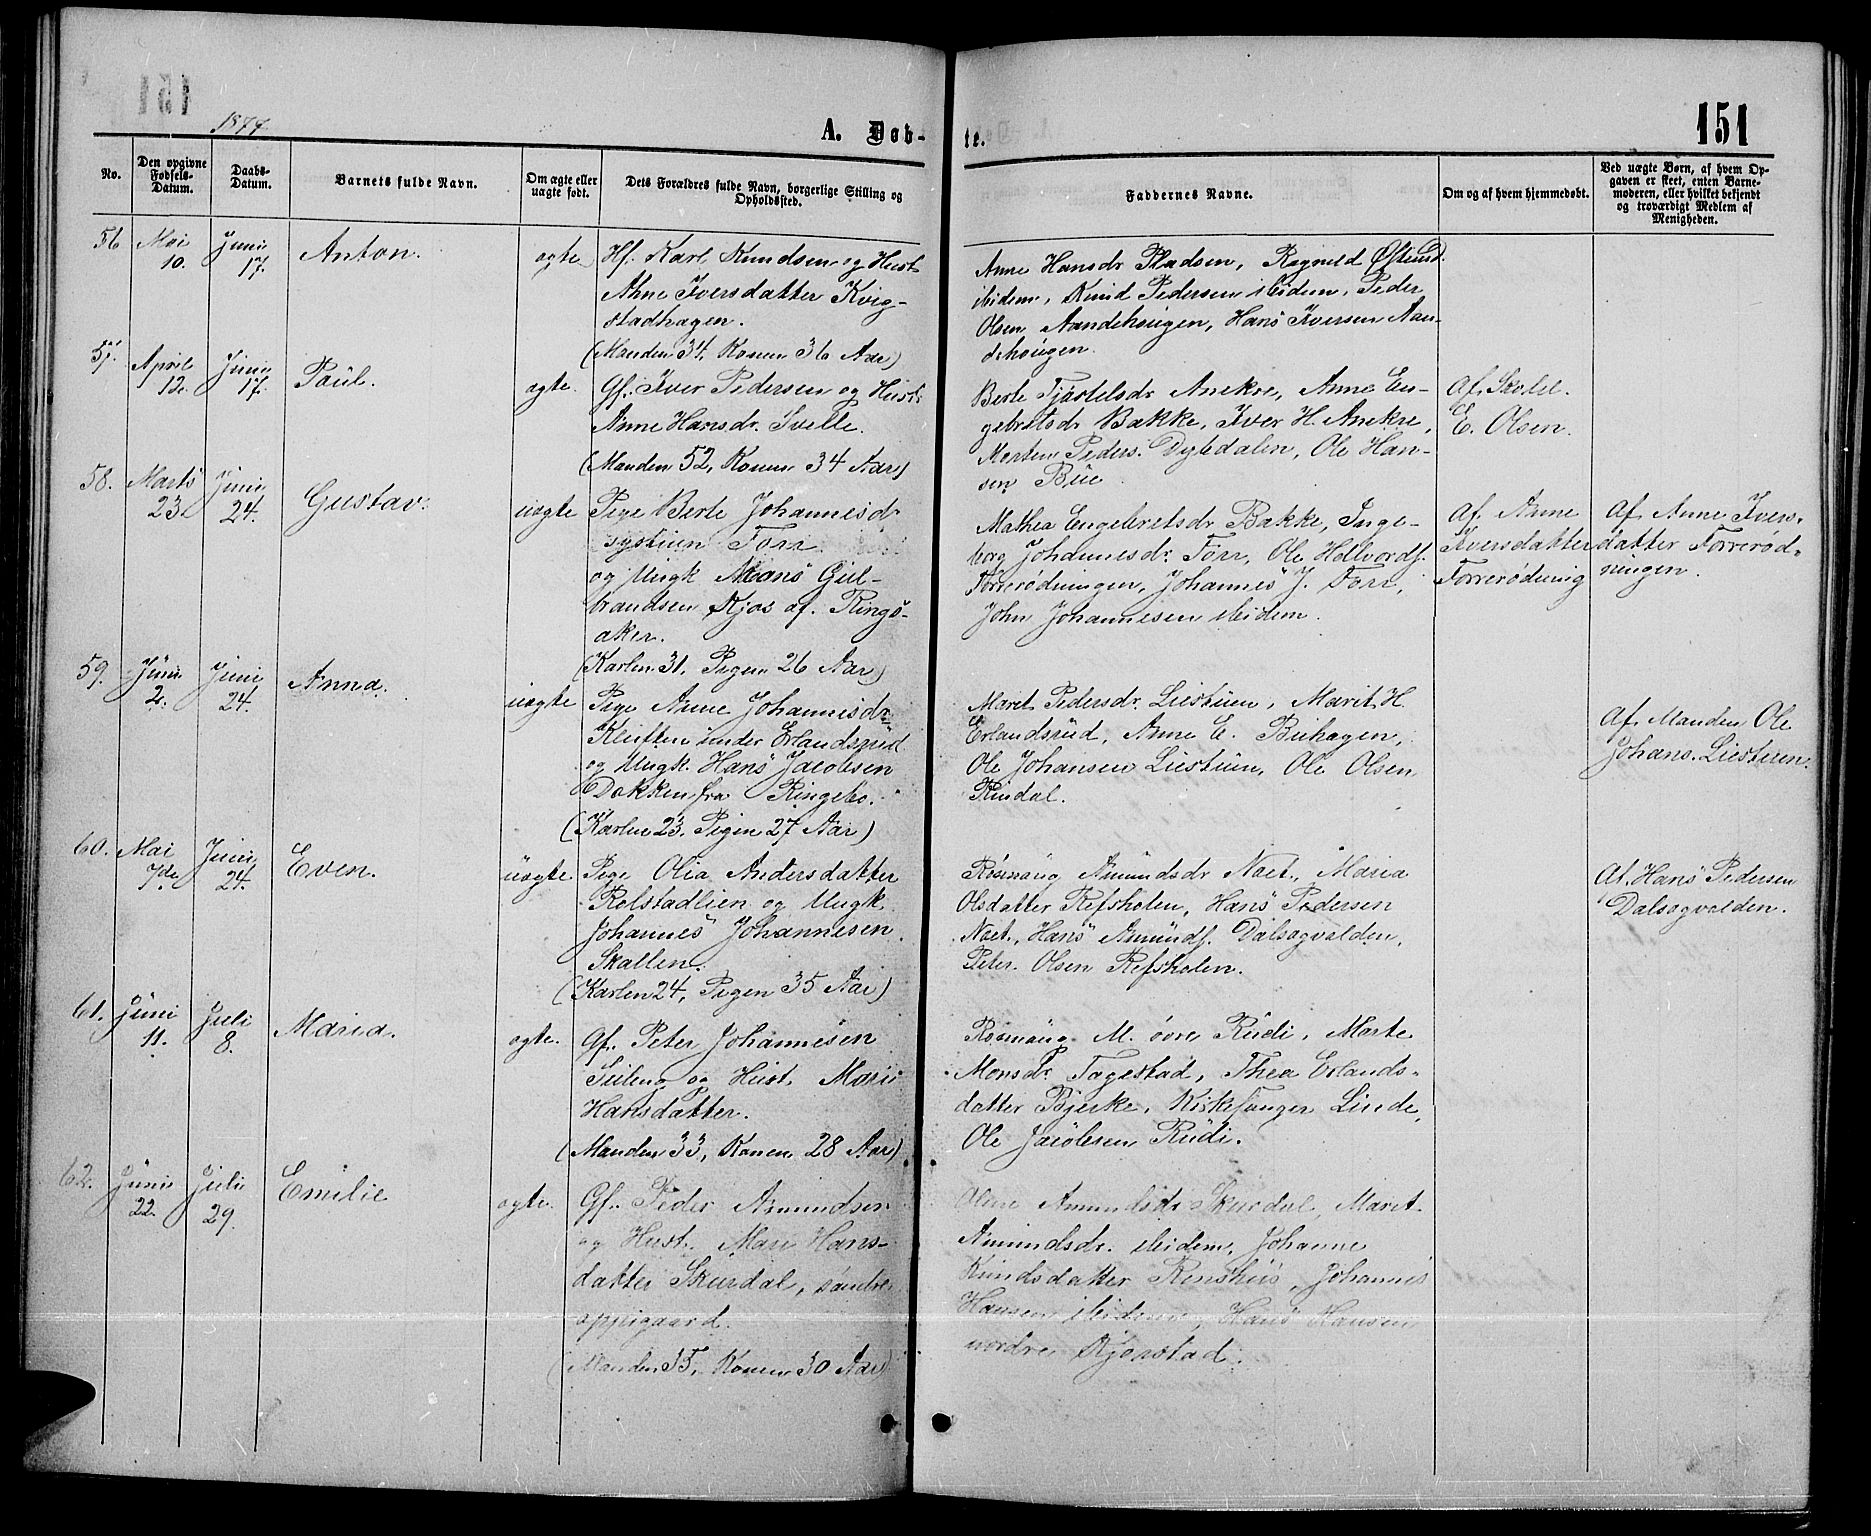 151
1877
A. Døb-
te.
151
No.
Den opgivne Fødsels-Datum.
Daabs-Datum.
Barnets fulde Navn.
Om ægte eller uægte født.
Dets Forældres fulde Navn, borgerlige Stilling og Opholdssted.
Faddernes Navne.
Om og af hvem hjemmedøbt.
Ved uægte Børn, af hvem Op-
gaven er skeet, enten Barne-
moderen, eller hvilket bekjendt
og troværdigt Medlem af
Menigheden.
56. Mai 10. Juni 17. Anton. ægte
Hf. Karl Knudsen og Hust.
Ahne Iversdatter Kvig-
stadhagen.
(Manden 34, Konen 36 Aar)
Anne Hansdr Pladsen, Ragnild Østlund
ibidem, Knud Pedersen ibidem, Peder
Olsen Aandehougen, Hans Iversen Aan-
dehougen.
57. April 12. Juni 17. Paul. ægte
Gf. Iver Pedersen og Hust.
Anne Hansdr. Svelle.
(Manden 52, Konen 34 Aar)
Berte Tjøstelsdr Anekre, Anne En-
gebretsdr Bakke, Iver H. Anekre,
Morten Peders. Dybdalen, Ole Han-
sen Bue.
Af. Skolel.
E. Olsen.
58. Marts 23. Juni 24. Gustav. uægte
Pige Berte Johannesdr
systuen Forr
og Ungk. Mons Gul-
brandsen Kjos af Rings-
aker.
(Karlen 31. Pigen 26 Aar)
Mathea Engebretsdr Bakke, Inge-
borg Johannesdr. Forr, Ole Halvords.
Forrerødningen, Johannes J. Forr,
John Johannesen ibidem.
Af. Anne
Iversdatter
Forrerødning
Af. Anne Ivers-
datter Forrerød-
ningen.
59. Juni 2. Juni 24. Anna. uægte
Pige Anne Johannisdr
Kleiften under Erlandsrud
og Ungk. Hans Jacobsen
Dokken fra Ringebo.
(Karlen 23. Pigen 27 Aar)
Maret Pedersdr. Liestuen, Marit H.
Erlandsrud, Anne E. Buhagen,
Ole Johansen Liestuen, Ole Olsen
Rindal.
Af. Manden Ole
Johans. Liestuen.
60. Mai 7de Juni 24. Even. uægte
Pige Olia Andersdatter
Rolstadlien og Ungk.
Johannes Johannesen
Skallen.
(Karlen 24, Pigen 35 Aar)
Rønnaug Amundsdr Noet, Maria
Olsdatter Refsholen, Hans Pedersen
Noet, Hans Amunds. Dalsøgvolden,
Peter Olsen Refsholen.
Af. Hans Pedersen
Dalsøgvolden.
61. Juni 11. Juli 8. Maria. ægte.
Gf. Peter Johannesen
Teileng og Hust. Mari
Hansdatter.
(Manden 33, Konen 28 Aar)
Rønnaug M. øvre Rudi, Marte
Monsdr. Fagestad, Thea Erlands-
datter Bjerke, Kirkesanger Linde,
Ole Jacobsen Rudi.
62. Juni 22. Juli 29. Emilie ægte.
Gf. Peder Amundsen
og Hust. Mari Hans-
datter Skurdal, søndre
oppigaard.
(Manden 35, Konen 30 Aar)
Oline Amundsdr Skurdal, Maret
Amundsdr. ibidem, Johanne
Knudsdatter Renshus, Johannes
Hansen ibidem, Hans Hansen
nordre Kjorstad.